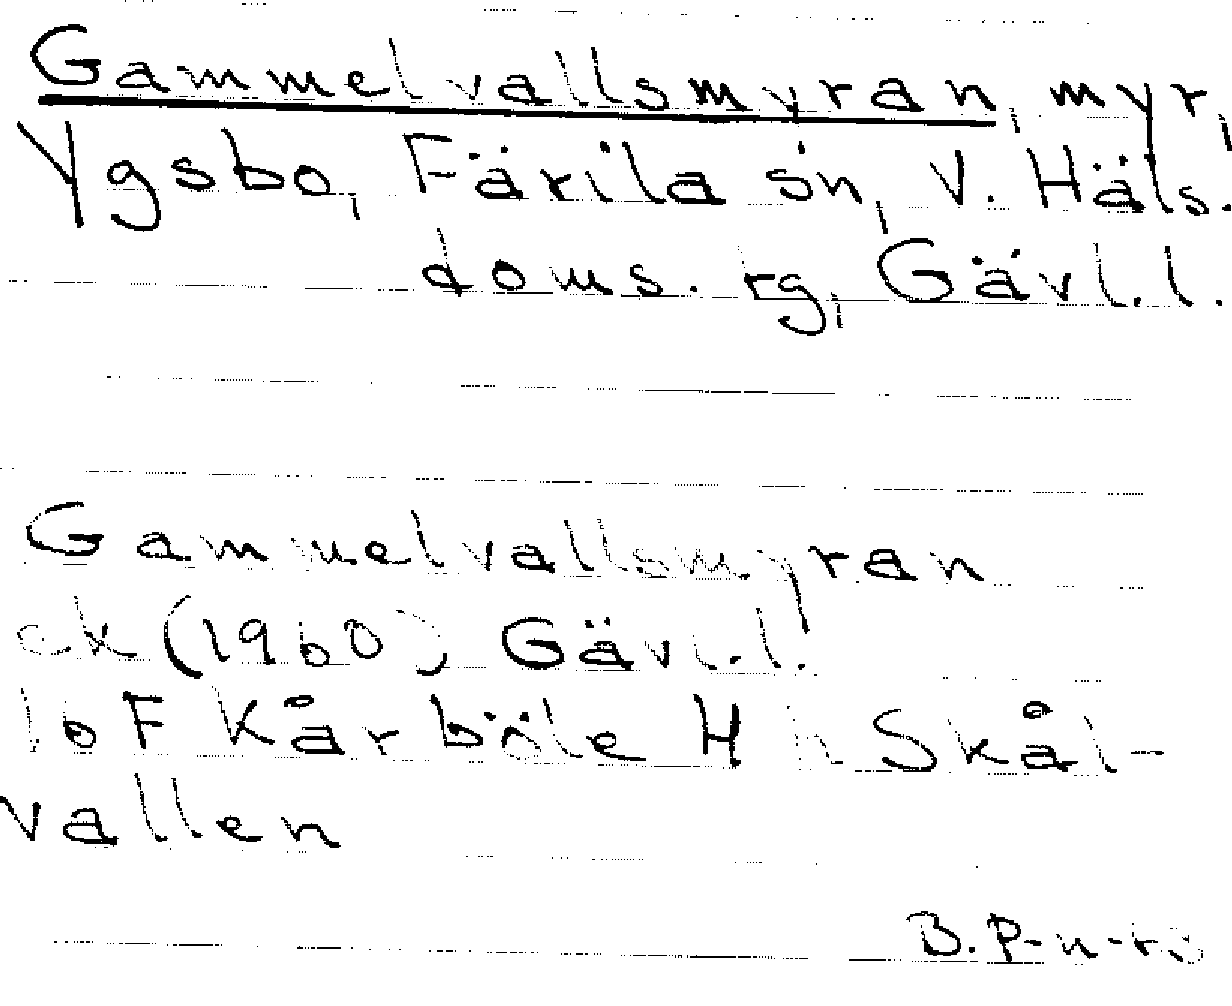 Gammelvallsmyran, myr,
Ygsbo, Färila sn, V. Häls.
doms. rg, Gävl.l.
Gammelvallsmyran
ek (1960) Gävl.l.
16F Kårböle 4 h Skål-
vallen